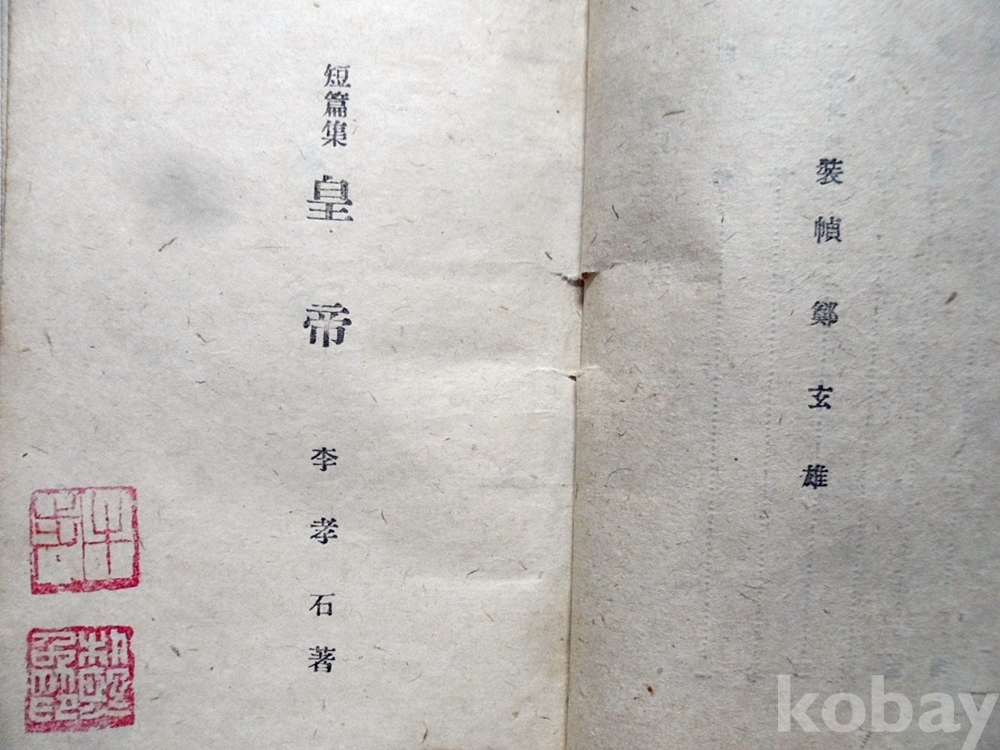 短篇集 皇帝 李孝石著
裝幀 鄭玄雄
kobay